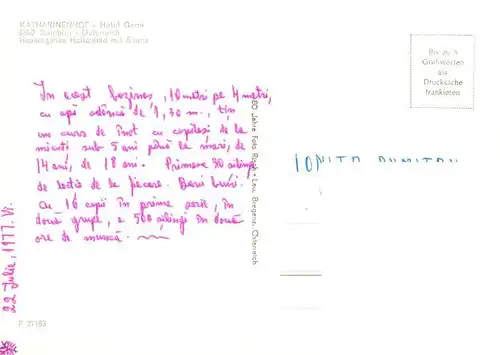 KATHARINENHOF - Hotel Garni
Österreich
Hauseigenes Hallenbad mit Sauna
Bis zu 5
Grußworten
als
Drucksache
frankieren
In acest bazines, 10 metri pe 4 metri,
cu apă adâncă de 1,30 m., țin
un curs de înot cu copilași de la
micuți sub 5 ani până la mari, de
14 ani, de 18 ani. Primesc 30 silingi
de lecție de la fiecare. Bani buni.
Cu 16 copii în prima serie, în
două grupe, e 500 șilingi în două
ore de muncă.
22 Julie, 1977. Vi.
80 Jahre Foto Risch-Lau, Bregenz, Österreich
IONITA DUMITRU
P 27163